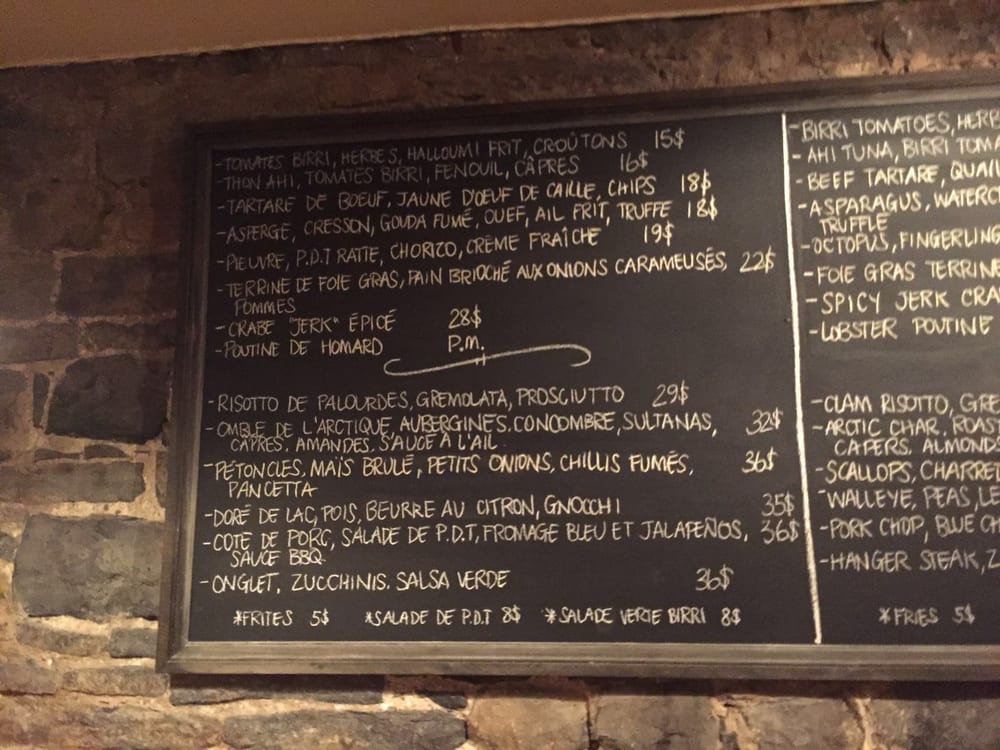 -TOMATES BIRRI, HERBES, HALLOUMI FRIT, CROÛTONS 15$
-THON AHI, TOMATES BIRRI, FENOUIL, CÂPRES 16$
-TARTARE DE BOEUF, JAUNE D'OEUF DE CAILLE, CHIPS 18$
-ASPERGE, CRESSON, GOUDA FUMÉ, OUEF, AIL FRIT, TRUFFE 18$
-PIEUVRE, P.D.T RATTE, CHORIZO, CRÈME FRAÎCHE 19$
-TERRINE DE FOIE GRAS, PAIN BRIOCHÉ AUX ONIONS CARAMEUSÉS, 22$
POMMES
-CRABE "JERK" ÉPICÉ 28$
-POUTINE DE HOMARD P.M.
-RISOTTO DE PALOURDES, GREMOLATA, PROSCIUTTO 29$
-OMBLE DE L'ARCTIQUE, AUBERGINES, CONCOMBRE, SULTANAS, 32$
CÂPRES, AMANDES, SAUCE À L'AIL
-PÉTONCLES, MAÏS BRULÉ, PETITS ONIONS, CHILLIS FUMÉS, 36$
PANCETTA
-DORÉ DE LAC, POIS, BEURRE AU CITRON, GNOCCHI 35$
-COTE DE PORC, SALADE DE P.D.T, FROMAGE BLEU ET JALAPEÑOS, 36$
SAUCE BBQ
-ONGLET, ZUCCHINIS. SALSA VERDE 36$
*FRITES 5$ *SALADE DE P.D.T 8$ *SALADE VERTE BIRRI 8$
-BIRRI TOMATOES, HERB
-AHI TUNA, BIRRI TOMA
-BEEF TARTARE, QUAIL
-ASPARAGUS, WATERC
TRUFFLE
-OCTOPUS, FINGERLING
-FOIE GRAS TERRINE
-SPICY JERK CRA
-LOBSTER POUTINE
-CLAM RISOTTO, GRE
-ARCTIC CHAR, ROAST
CAPERS, ALMONDS
-SCALLOPS, CHARRE
-WALLEYE, PEAS, LE
-PORK CHOP, BLUE CH
-HANGER STEAK, Z
*FRIES 5$